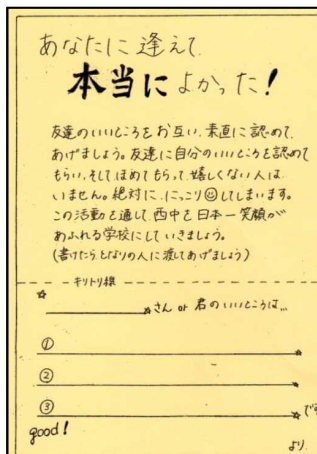 あなたに逢えて
本当によかった！
友達のいいところをお互い、素直に認めて
あげましょう。友達に自分のいいところを認めて
もらい、そしてほめてもらって、嬉しくない人は
いません。絶対に、にっこり☺してしまいます。
この活動を通して、西中を日本一笑顔が
あふれる学校にしていきましょう。
(書けたら、となりの人に渡してあげましょう)
キリトリ線
☆
☆さん or 君のいいところは…
① ☆
② ☆
③ ☆です
good!
より